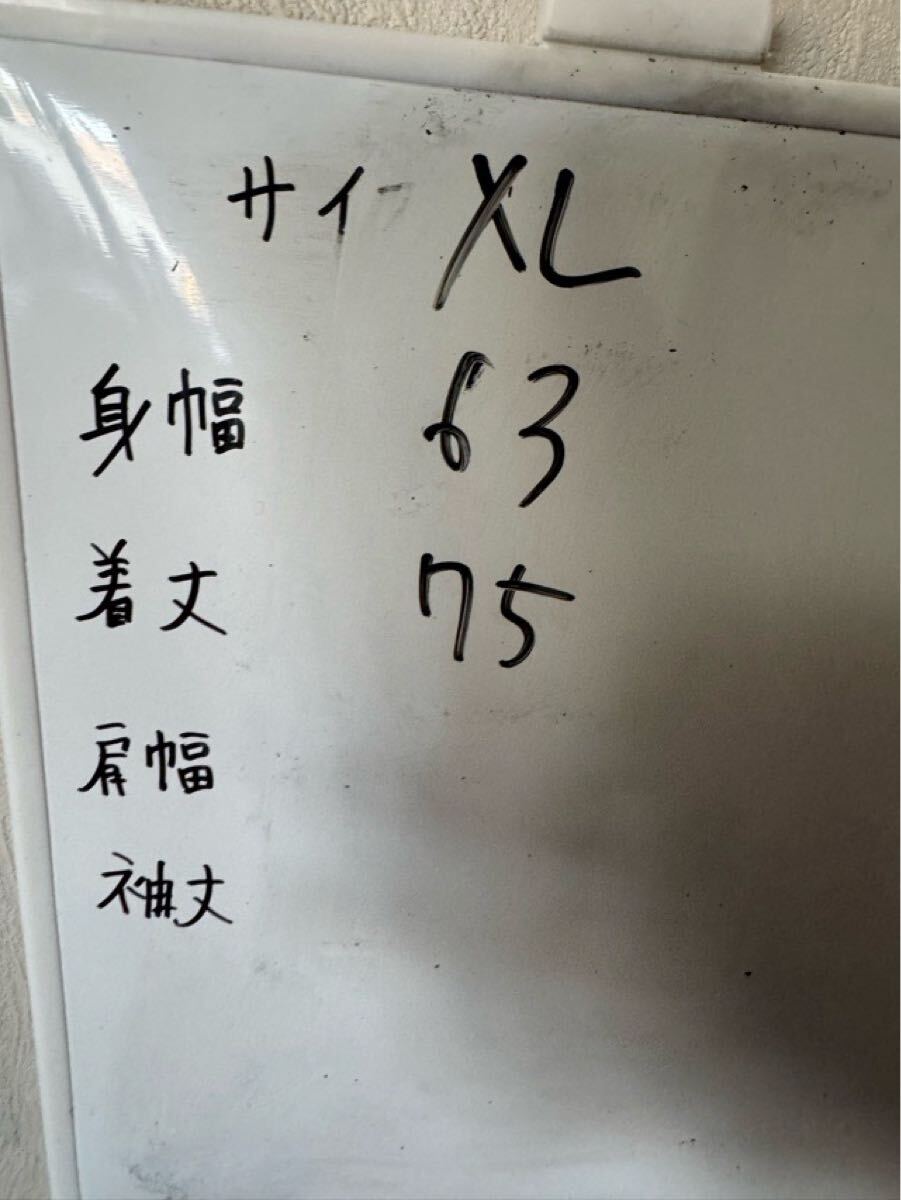 サイ XL
身幅 63
着丈 75
肩幅
袖丈